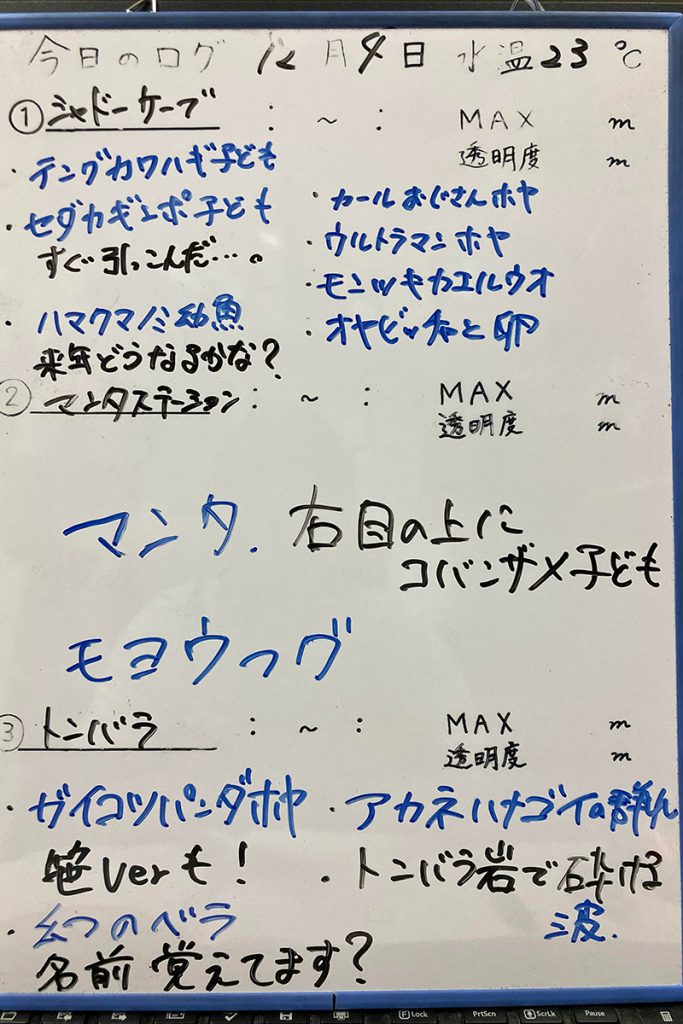 今日のログ 12月4日 水温23℃
①シャドーケーブ : ~ : MAX m
透明度 m
・テングカワハギ子ども
・セダカギンポ子ども
すぐ引っこんだ…。
・ハマクマノミ幼魚
来年どうなるかな?
・カールおじさんホヤ
・ウルトラマンホヤ
・モンツキカエルウオ
・オヤビッチャと卵
②マンタステーション : ~ : MAX m
透明度 m
マンタ. 右目の上に
コバンザメ子ども
モヨウフグ
③トンバラ : ~ : MAX m
透明度 m
・ガイコツパンダホヤ
笹Verも!
・幻つのベラ
名前覚えてます?
・アカネハナゴイの群れ
・トンバラ岩で砕ける
波.
F Lock
PrtScn
ScrLk
Pause